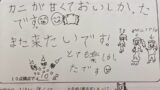 カニが甘くておいしかった
です
また来たいです。
とても楽しかっ
たです